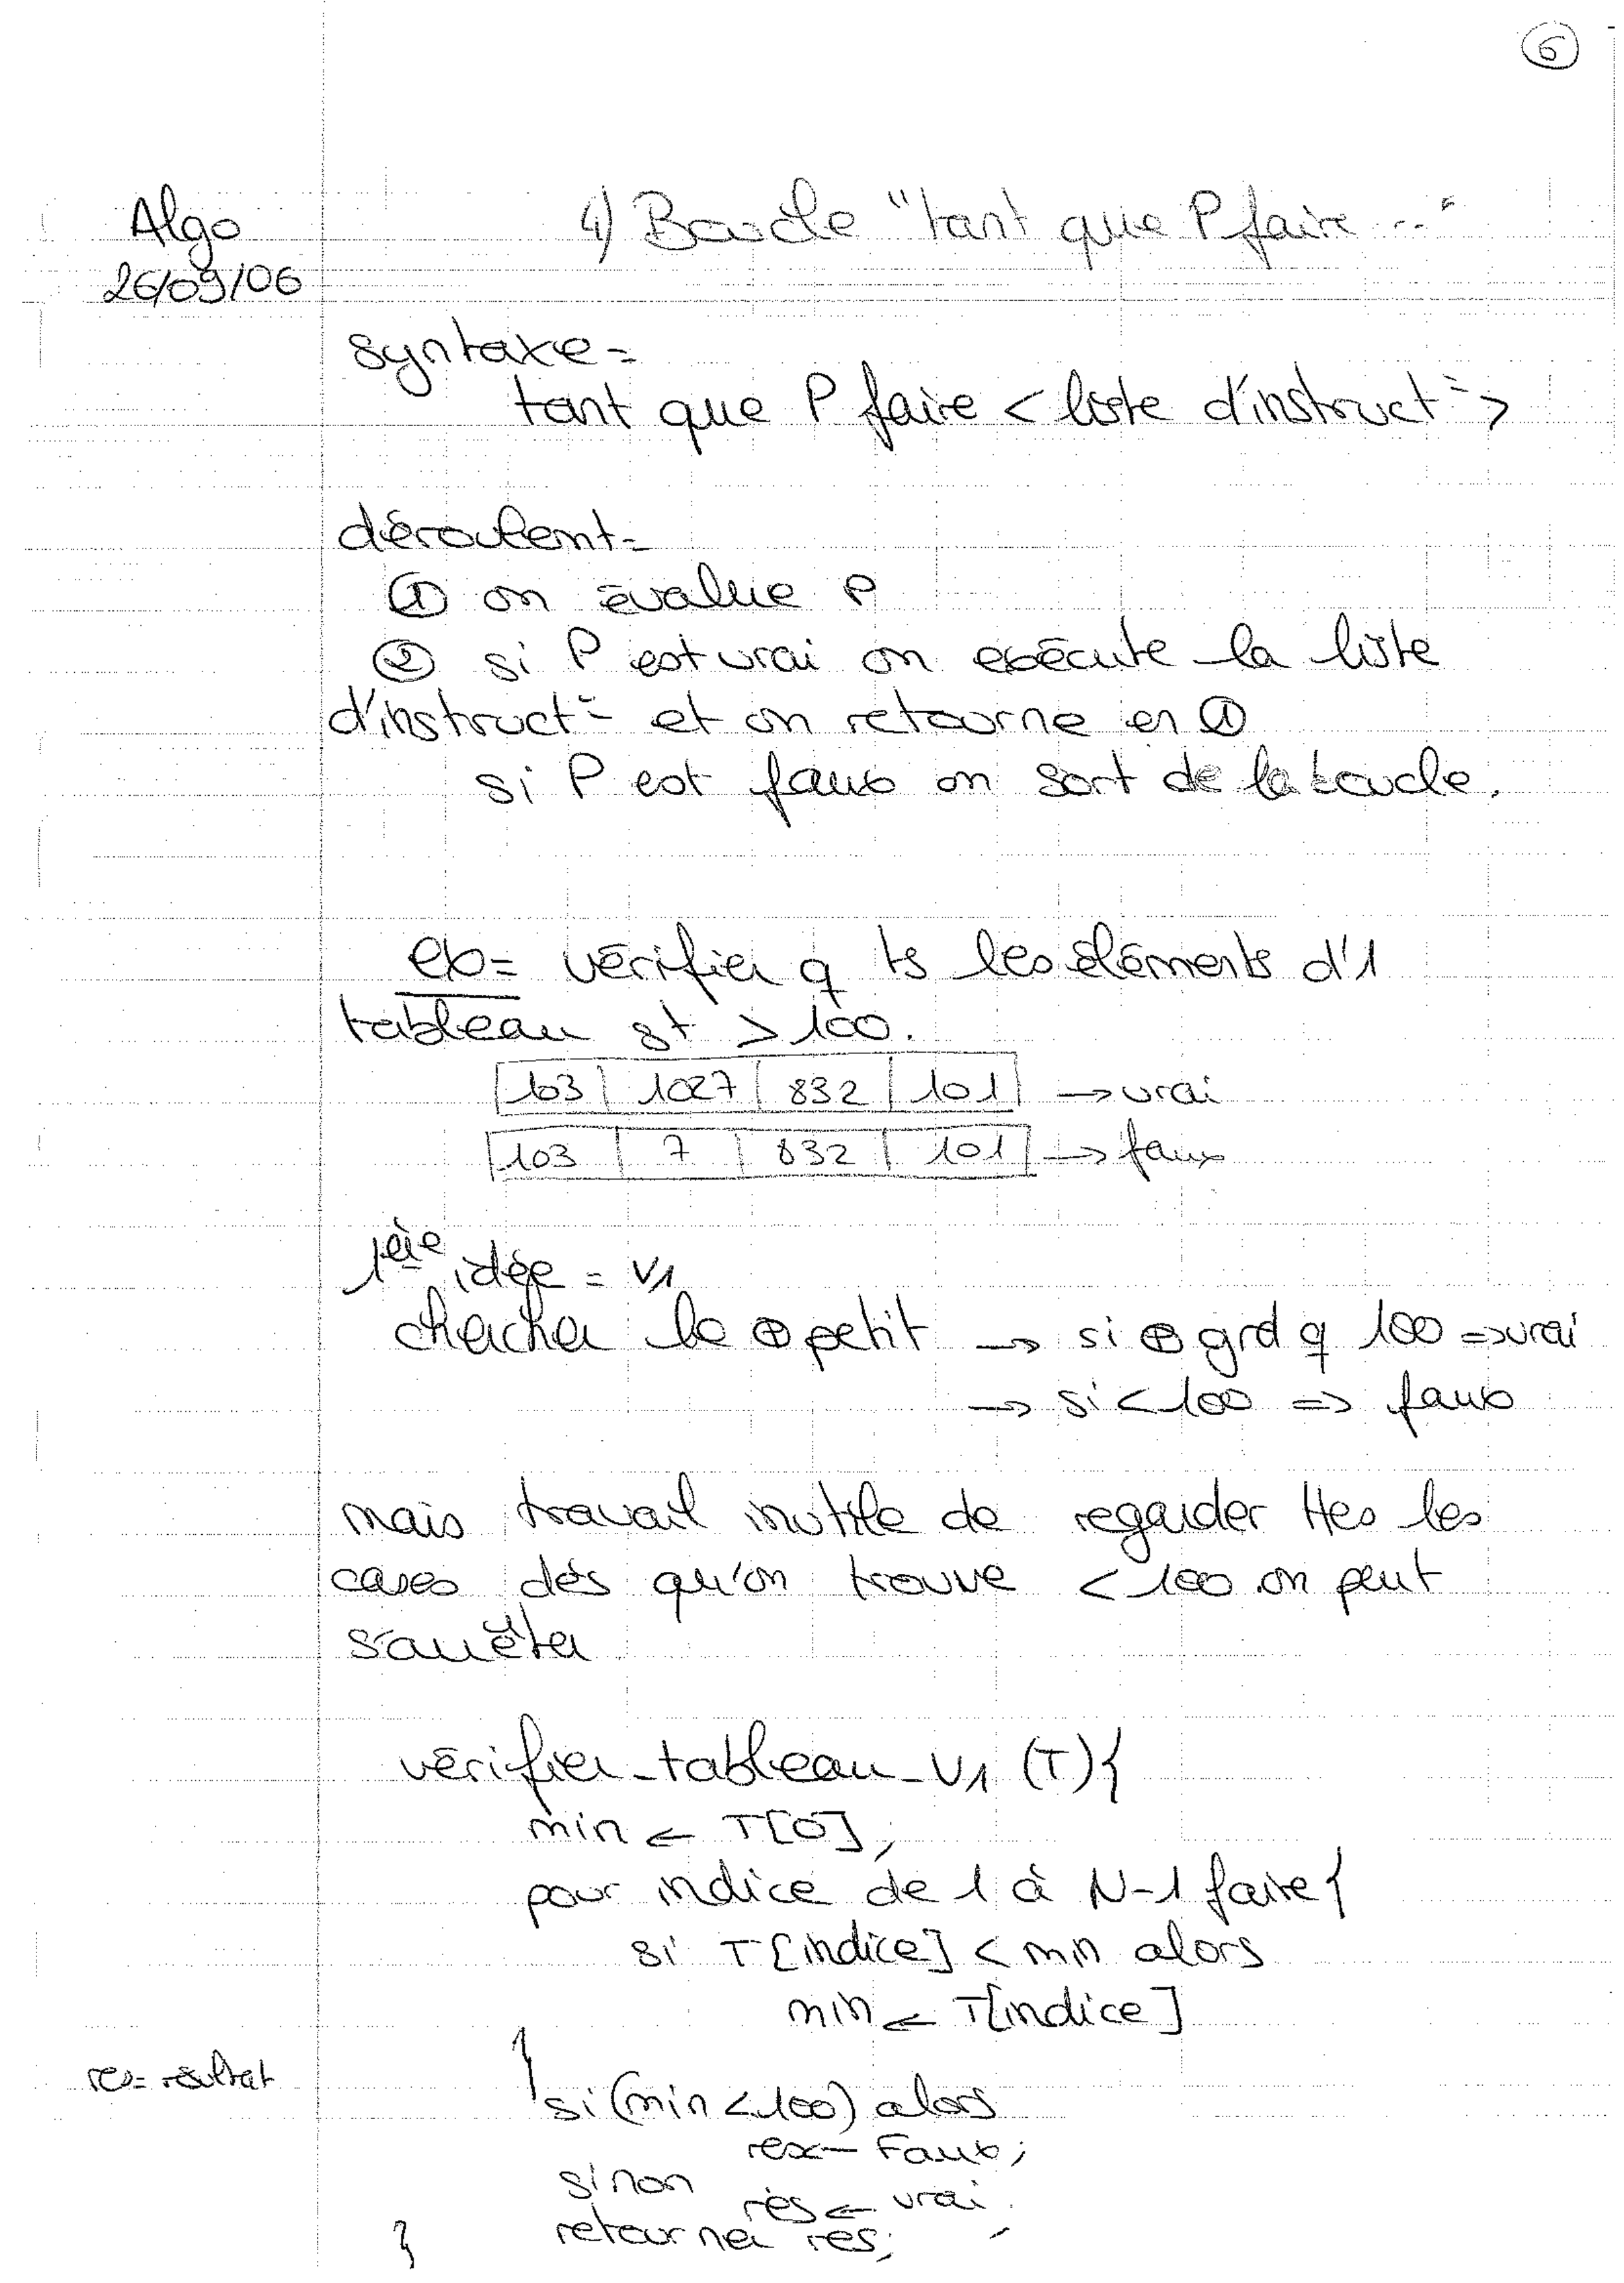 6
Algo
26/09/06
4) Boucle "tant que P faire ..."
syntaxe =
tant que P faire < liste d'instruct° >
déroulemt =
① on évalue P
② si P est vrai on exécute la liste
d'instruct° et on retourne en ①
si P est faux on sort de la boucle.
ex = vérifier q ts les éléments d'1
tableau st > 100.
103 | 1027 | 832 | 101 → vrai
103 | 7 | 832 | 101 → faux
1ère idée = V1
chercher le ⊕ petit → si ⊕ grd q 100 => vrai
→ si < 100 => faux
mais travail inutile de regarder ttes les
cases dès qu'on trouve < 100 on peut
s'arrêter
vérifier_tableau_V1 (T){
min ← T[0];
pour indice de 1 à N-1 faire {
si T[indice] < min alors
min ← T[indice]
}
res = résultat
si (min < 100) alors
res ← Faux;
sinon
res ← vrai;
retourner res;
}